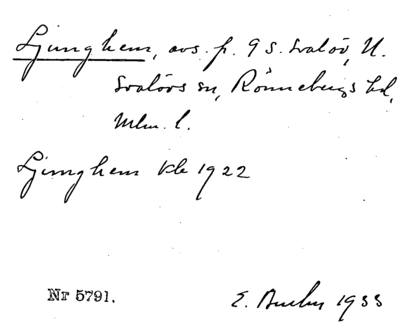 Ljunghem, avs. fr. 9 s. Svalöv, N.
Svalövs sn, Rönnebergs hd,
Mlm. l.
Ljunghem Kb 1922
Nr 5791.
E. 1933